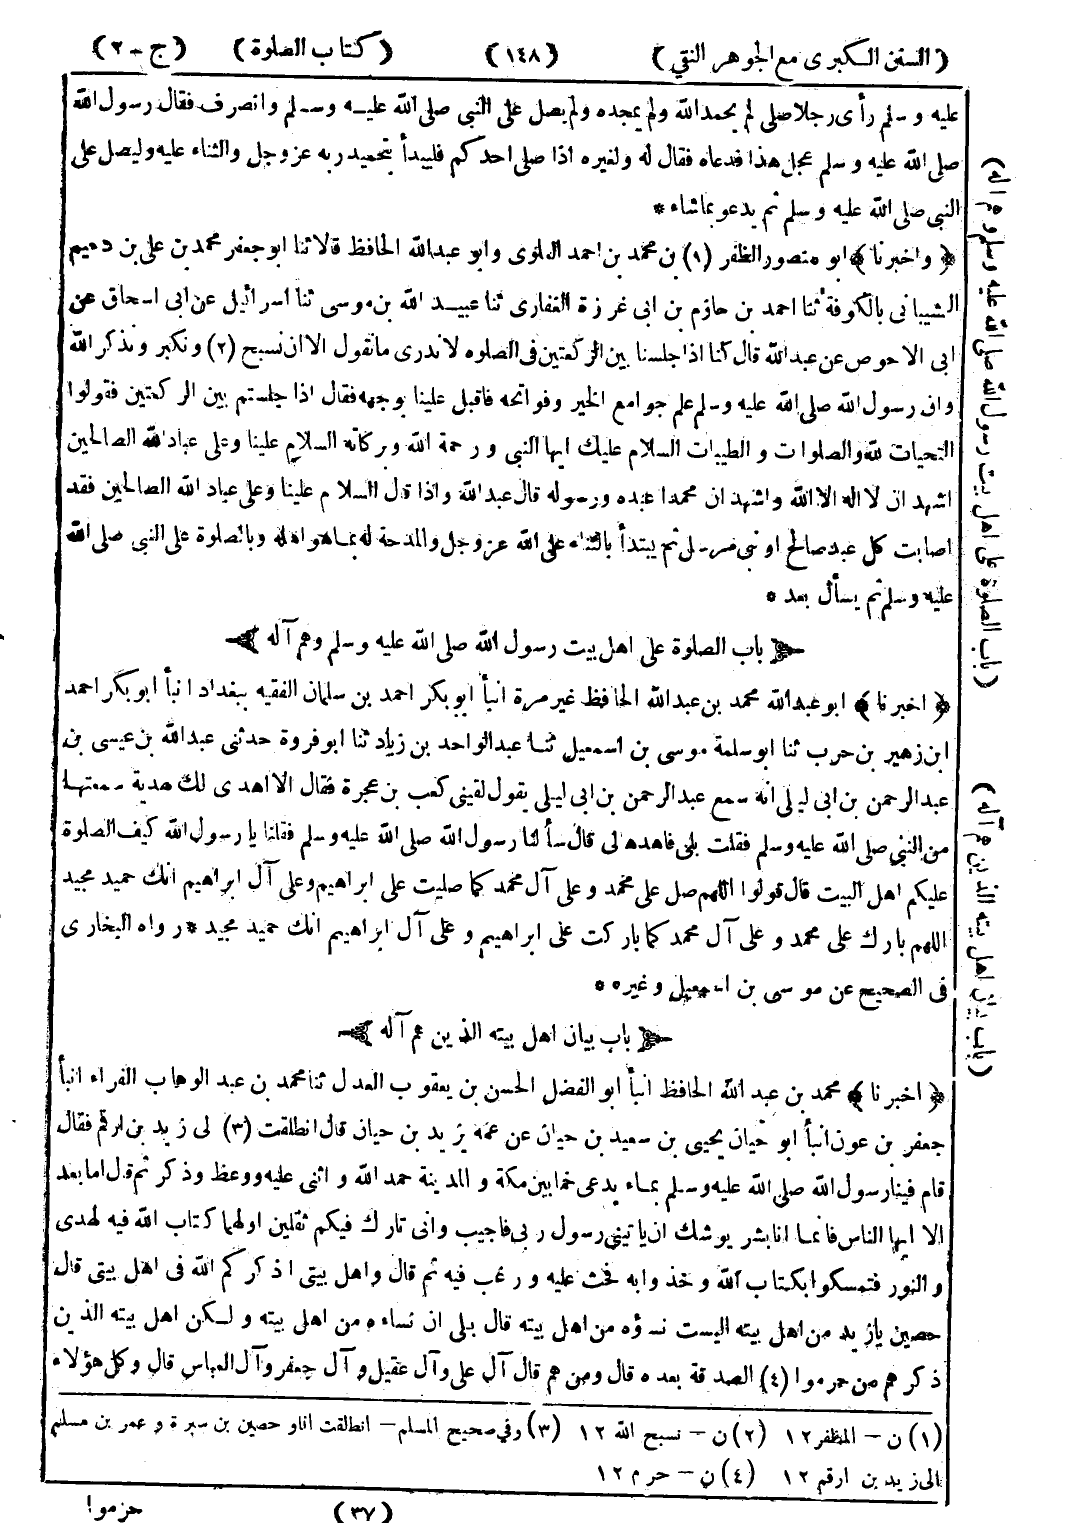 (السنن الكبرى مع الجوهر النقي) (١٤٨) (كتاب الصلوة) (ج-٢)
عليه وسلم رأى رجلا صلى لم يحمد الله ولم يمجده ولم يصل على النبي صلى الله عليه وسلم وانصرف فقال رسول الله
صلى الله عليه وسلم عجل هذا فدعاه فقال له ولغيره اذا صلى احدكم فليبدأ بتحميد ربه عزوجل والثناء عليه وليصل على
النبي صلى الله عليه وسلم ثم يدعو بما شاء *
﴿واخبرنا﴾ ابو منصور الظفر (١) بن محمد بن احمد العلوى وابو عبدالله الحافظ قالا ثنا ابو جعفر محمد بن على بن دحيم
الشيبانى بالكوفة ثنا احمد بن حازم بن ابى غرزة الغفارى ثنا عبيد الله بن موسى ثنا اسرائيل عن ابى اسحاق عن
ابى الاحوص عن عبدالله قال كنا اذا جلسنا بين الركعتين فى الصلوه لا ندرى ما نقول الا ان نسبح (٢) ونكبر ونذكر الله
وان رسول الله صلى الله عليه وسلم علم جوامع الخير وفواتحه فاقبل علينا بوجهه فقال اذا جلستم بين الركعتين فقولوا
التحيات لله والصلوات والطيبات السلام عليك ايها النبي ورحمة الله وبركاته السلام علينا وعلى عباد الله الصالحين
اشهد ان لا اله الا الله واشهد ان محمدا عبده ورسوله قال عبدالله واذا قال السلام علينا وعلى عباد الله الصالحين فقد
اصابت كل عبد صالح او نبي مرسل ثم يبتدأ بالثناء على الله عزوجل والمدحة له بما هو اهله وبالصلوة على النبى صلى الله
عليه وسلم ثم يسأل بعد *
باب الصلوة على اهل بيت رسول الله صلى الله عليه وسلم وهم آله
﴿اخبرنا﴾ ابو عبدالله محمد بن عبدالله الحافظ غير مرة انبأ ابو بكر احمد بن سلمان الفقيه ببغداد انبأ ابو بكر احمد
ابن زهير بن حرب ثنا ابو سلمة موسى بن اسمعيل ثنا عبدالواحد بن زياد ثنا ابو فروة حدثنى عبدالله بن عيسى بن
عبدالرحمن بن ابى ليلى انه سمع عبدالرحمن بن ابى ليلى يقول لقينى كعب بن عجرة فقال الا اهدى لك هدية سمعتها
من النبي صلى الله عليه وسلم فقلت بلى فاهدها لى قال سألنا رسول الله صلى الله عليه وسلم فقلنا يا رسول الله كيف الصلوة
عليكم اهل البيت قال قولوا اللهم صل على محمد وعلى آل محمد كما صليت على ابراهيم وعلى آل ابراهيم انك حميد مجيد
اللهم بارك على محمد وعلى آل محمد كما باركت على ابراهيم وعلى آل ابراهيم انك حميد مجيد * رواه البخارى
فى الصحيح عن موسى بن اسمعيل وغيره *
باب بيان اهل بيته الذين هم آله
﴿اخبرنا﴾ محمد بن عبد الله الحافظ انبأ ابو الفضل الحسن بن يعقوب العدل ثنا محمد بن عبد الوهاب الفراء انبأ
جعفر بن عون انبأ ابو حيان يحيى بن سعيد بن حيان عن عمه يزيد بن حيان قال انطلقت (٣) الى زيد بن ارقم فقال
قام فينا رسول الله صلى الله عليه وسلم بماء يدعى خما بين مكة والمدينة حمد الله واثنى عليه ووعظ وذكر ثم قال اما بعد
الا ايها الناس فانما انا بشر يوشك ان ياتينى رسول ربى فاجيب وانى تارك فيكم ثقلين اولهما كتاب الله فيه الهدى
والنور فتمسكوا بكتاب الله وخذوا به فحث عليه ورغب فيه ثم قال واهل بيتى اذكركم الله فى اهل بيتى قال
حصين يا زيد من اهل بيته اليست نسؤه من اهل بيته قال بلى ان نساءه من اهل بيته ولكن اهل بيته الذين
ذكرهم من حرموا (٤) الصدقة بعده قال ومن هم قال آل على وآل عقيل وآل جعفر وآل العباس قال وكل هؤلاء
(١) ن - المظفر ١٢ (٢) ن - نسبح الله ١٢ (٣) وفي صحيح المسلم - انطلقت انا و حصين بن سبرة و عمر بن مسلم
الى زيد بن ارقم ١٢ (٤) ن - حرم ١٢
(٣٧) حرموا
(باب الصلوة على اهل بيت رسول الله صلى الله عليه وسلم وهم آله)
(باب بيان اهل بيته الذين هم آله)